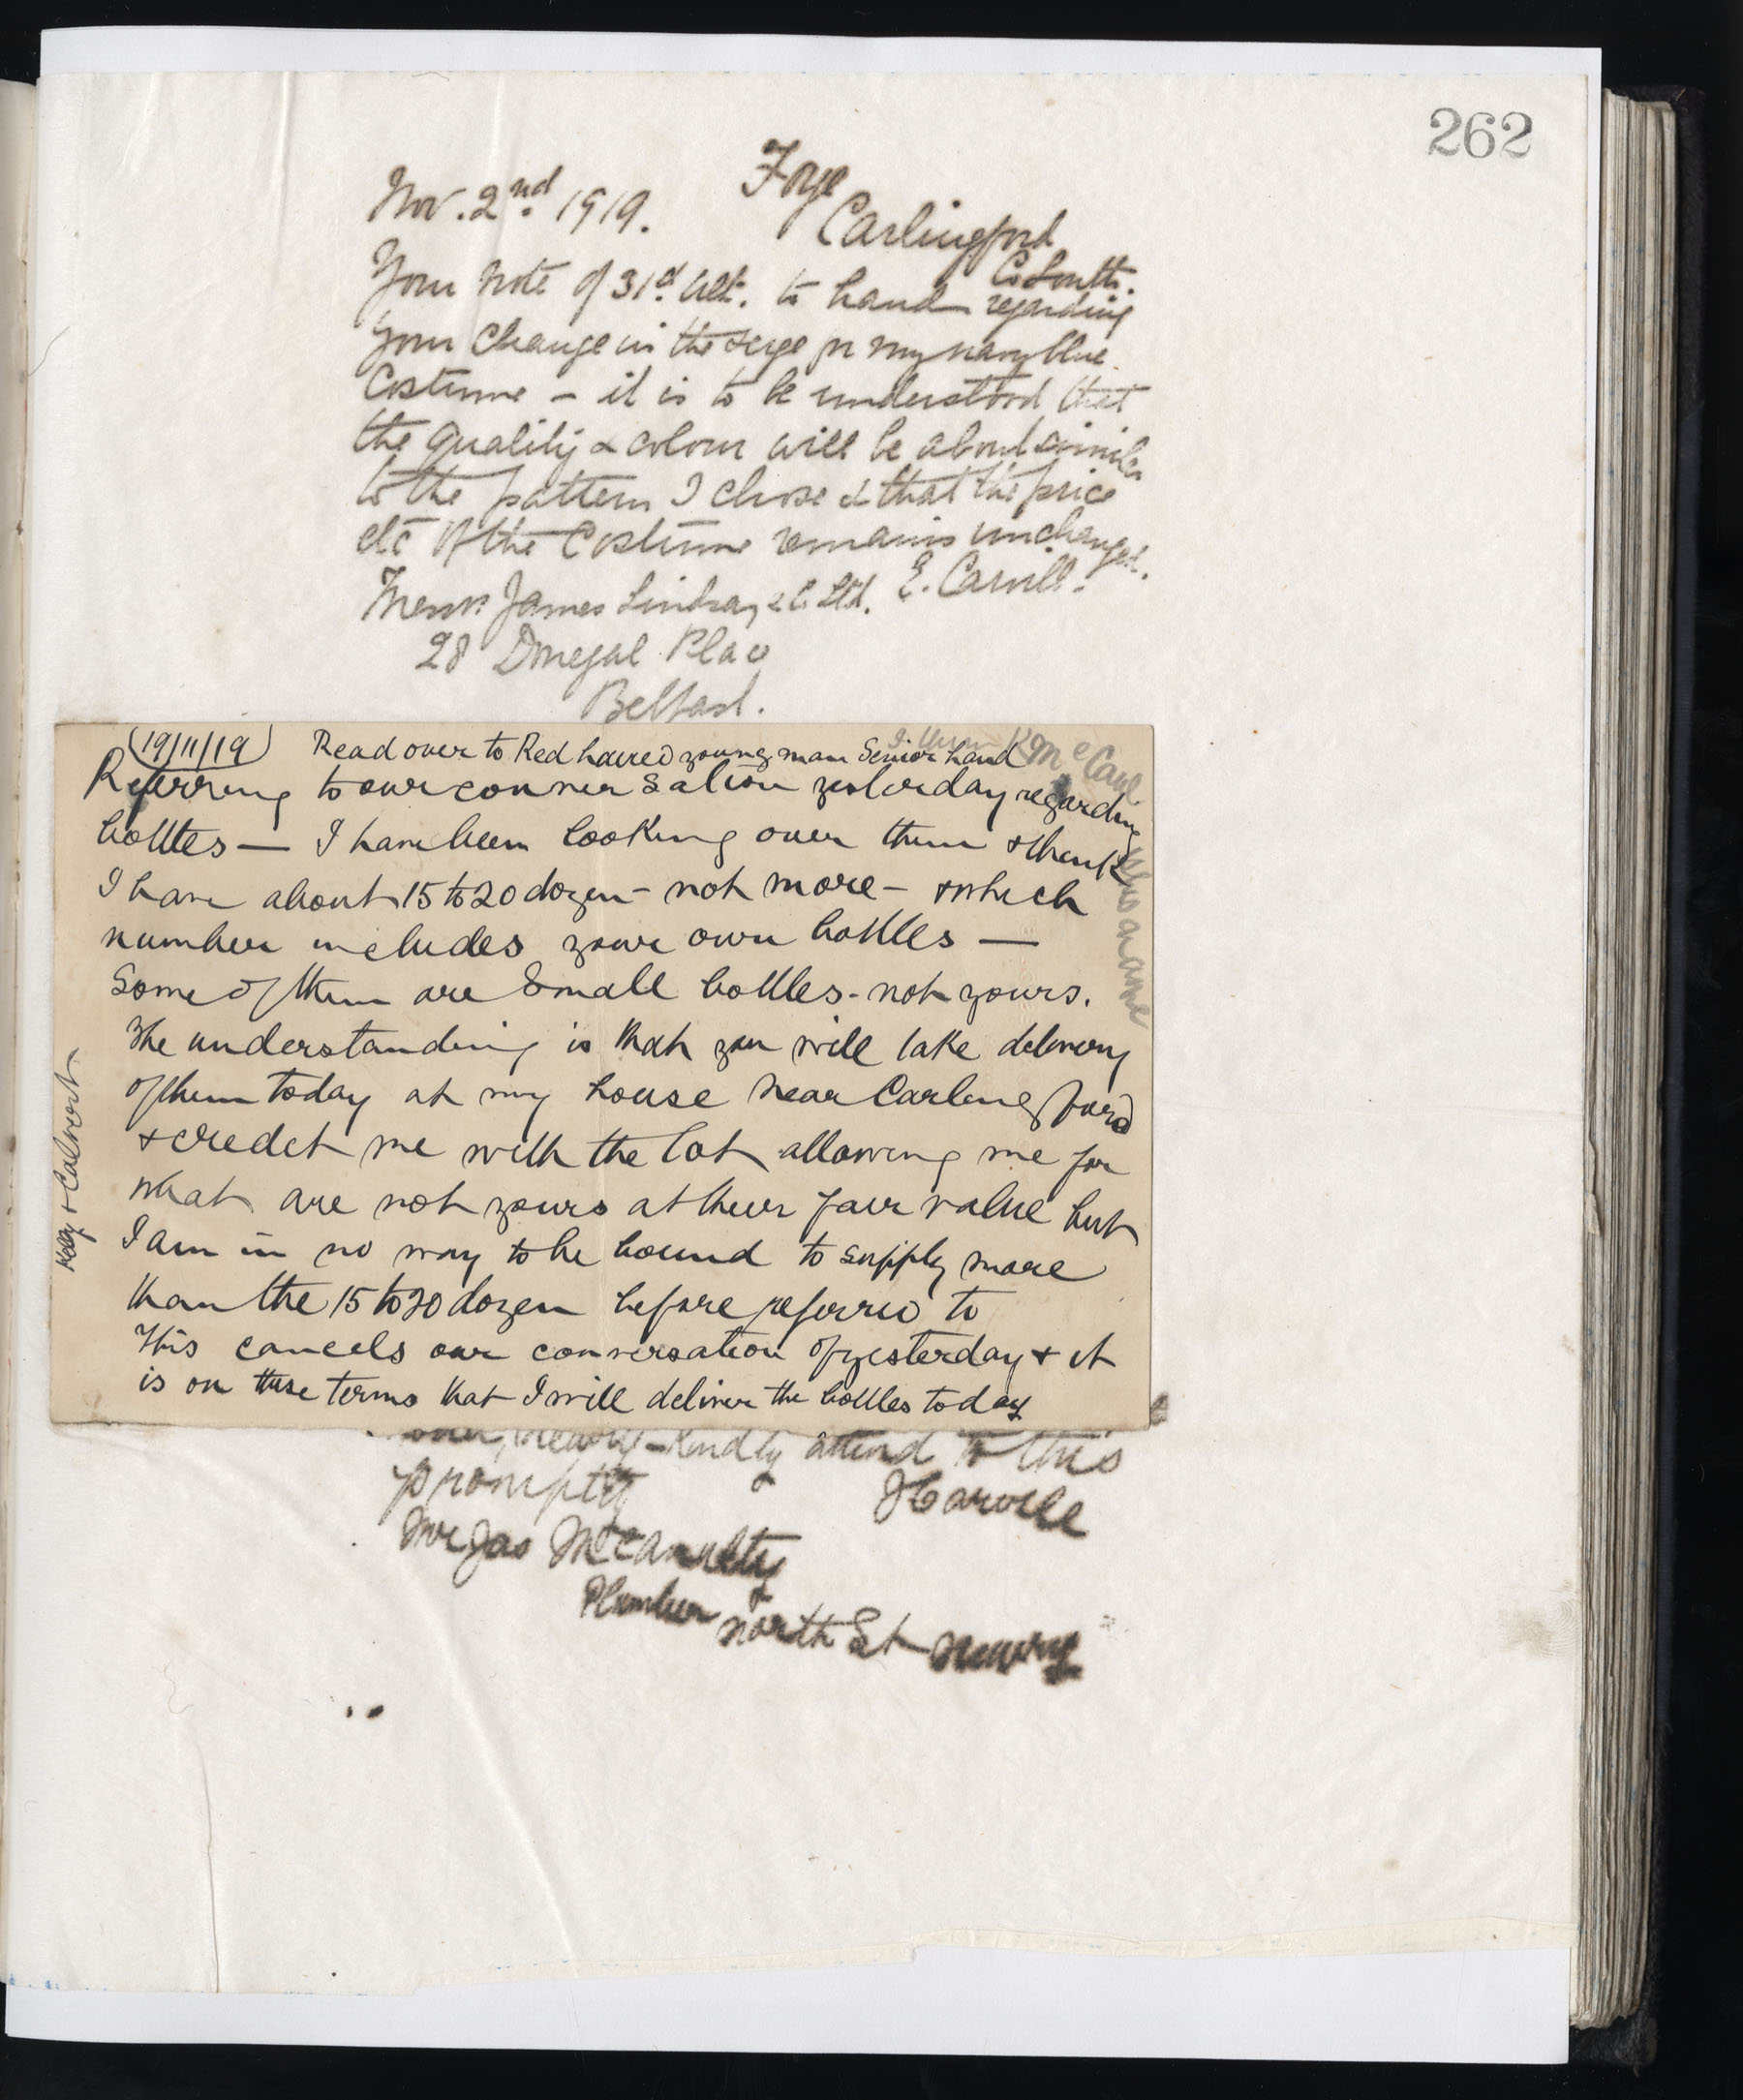 262
Nov. 2nd 1919. Foye
Carlingford
Co Louth.
Your note of 31st ult. to hand regarding
your change in the serge for my navy blue
Costume – it is to be understood that
the quality & colour will be about similar
to the pattern I chose & that the price
etc of the Costume remains unchanged.
E. Carvill.
Messrs James Lindsay & Co Ltd.
28 Donegal Place
Belfast.
(19/11/19) Read over to Red haired young man Senior hand
I think McCaul
was a name
Referring to our conversation yesterday regarding
bottles — I have been looking over them & think
I have about 15 to 20 dozen – not more – & which
number includes your own bottles —
Some of them are Small bottles - not yours.
The understanding is that you will take delivery
of them today at my house near Carlingford
& credit me with the lot allowing me for
what are not yours at their fair value but
I am in no way to be bound to supply more
than the 15 to 20 dozen before referred to
This cancels our conversation of yesterday & it
is on these terms that I will deliver the bottles today
Kelly & Calvert
Newry – Kindly attend to this
promptly JCarvill
Mr Jas McAnulty
Plumber
North St Newry